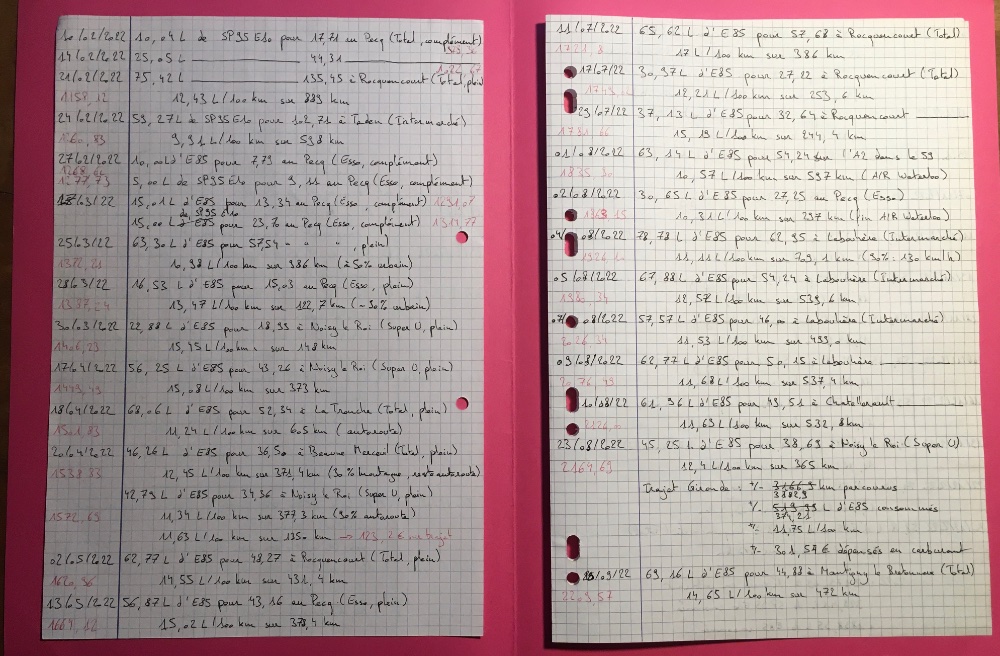 10/02/2022 10,04 L de SP95 E10 pour 17,71 au Pecq (Total, complément)
14/02/2022 25,05 L 44,31
21/02/2022 75,42 L 135,45 à Rocquencourt (Total, plein)
1158,12 12,43 L/100 km sur 889 km
24/02/2022 59,27 L de SP95 E10 pour 102,71 à Taden (Intermarché)
1260,83 9,91 L/100 km sur 598 km
27/02/2022 10,00 L d'E85 pour 7,79 au Pecq (Esso, complément)
1268,62
1277,73 5,00 L de SP95 E10 pour 9,11 au Pecq (Esso, complément)
03/2022 15,01 L d'E85 pour 13,34 au Pecq (Esso, complément) 1291,07
de SP95 E10
15,00 L pour 23,70 au Pecq (Esso, complément) 1314,77
25/03/22 63,30 L d'E85 pour 57,54 - " " , plein)
1372,31 10,98 L/100 km sur 986 km (à 50% urbain)
28/03/22 16,53 L d'E85 pour 15,03 au Pecq (Esso, plein)
1387,34 13,47 L/100 km sur 122,7 km (~90% urbain)
30/03/2022 22,88 L d'E85 pour 18,99 à Noisy le Roi (Super U, plein)
1406,23 15,45 L/100 km sur 148 km
17/04/2022 56,25 L d'E85 pour 43,26 à Noisy le Roi (Super U, plein)
1449,49 15,08 L/100 km sur 373 km
18/04/2022 68,06 L d'E85 pour 52,34 à La Tronche (Total, plein)
1501,83 11,24 L/100 km sur 605 km (autoroute)
20/04/2022 46,26 L d'E85 pour 36,50 à Beaune Merceuil (Total, plein)
1538,33 12,45 L/100 km sur 371,4 km (30% montagne, reste autoroute)
42,79 L d'E85 pour 34,36 à Noisy le Roi (Super U, plein)
1572,69 11,34 L/100 km sur 377,3 km (90% autoroute)
11,63 L/100 km sur 1350 km → 123,2 € trajet
02/05/2022 62,77 L d'E85 pour 48,27 à Rocquencourt (Total, plein)
1620,96 14,55 L/100 km sur 431,4 km
13/05/2022 56,87 L d'E85 pour 43,16 au Pecq (Esso, plein)
1664,12 15,02 L/100 km sur 378,4 km
11/07/2022 65,62 L d'E85 pour 57,68 à Rocquencourt (Total)
1721,8 17 L/100 km sur 386 km
17/07/22 30,97 L d'E85 pour 27,22 à Rocquencourt (Total)
12,21 L/100 km sur 253,6 km
29/07/22 37,13 L d'E85 pour 32,64 à Rocquencourt
1781,66 15,19 L/100 km sur 244,4 km
01/08/2022 63,14 L d'E85 pour 54,24 sur l'A2 dans le 59
1835,90 10,57 L/100 km sur 597 km (A/R Waterloo)
02/08/2022 30,65 L d'E85 pour 27,25 au Pecq (Esso)
1863,15 10,31 L/100 km sur 297 km (fin A/R Waterloo)
04/08/2022 78,78 L d'E85 pour 62,95 à Labouhère (Intermarché)
1926,10 11,11 L/100 km sur 709,1 km (90%: 130 km/h)
05/08/2022 67,88 L d'E85 pour 54,24 à Labouhère (Intermarché)
1980,34 12,57 L/100 km sur 539,6 km
07/08/2022 57,57 L d'E85 pour 46,00 à Labouhère (Intermarché)
2026,34 11,53 L/100 km sur 499,0 km
09/08/2022 62,77 L d'E85 pour 50,15 à Labouhère
2076,49 11,68 L/100 km sur 537,4 km
10/08/22 61,96 L d'E85 pour 49,51 à Chatellerault
2126,0 11,63 L/100 km sur 532,8 km
23/08/2022 45,25 L d'E85 pour 38,69 à Noisy le Roi (Super U)
2164,69 12,4 L/100 km sur 365 km
Trajet Gironde : +/- km parcourus
+/- L d'E85 consommés
+/- 11,75 L/100 km
+/- 301,54 € dépensés en carburant
/09/22 69,16 L d'E85 pour 44,88 à Montigny le Bretonneux (Total)
2209,57 14,65 L/100 km sur 472 km